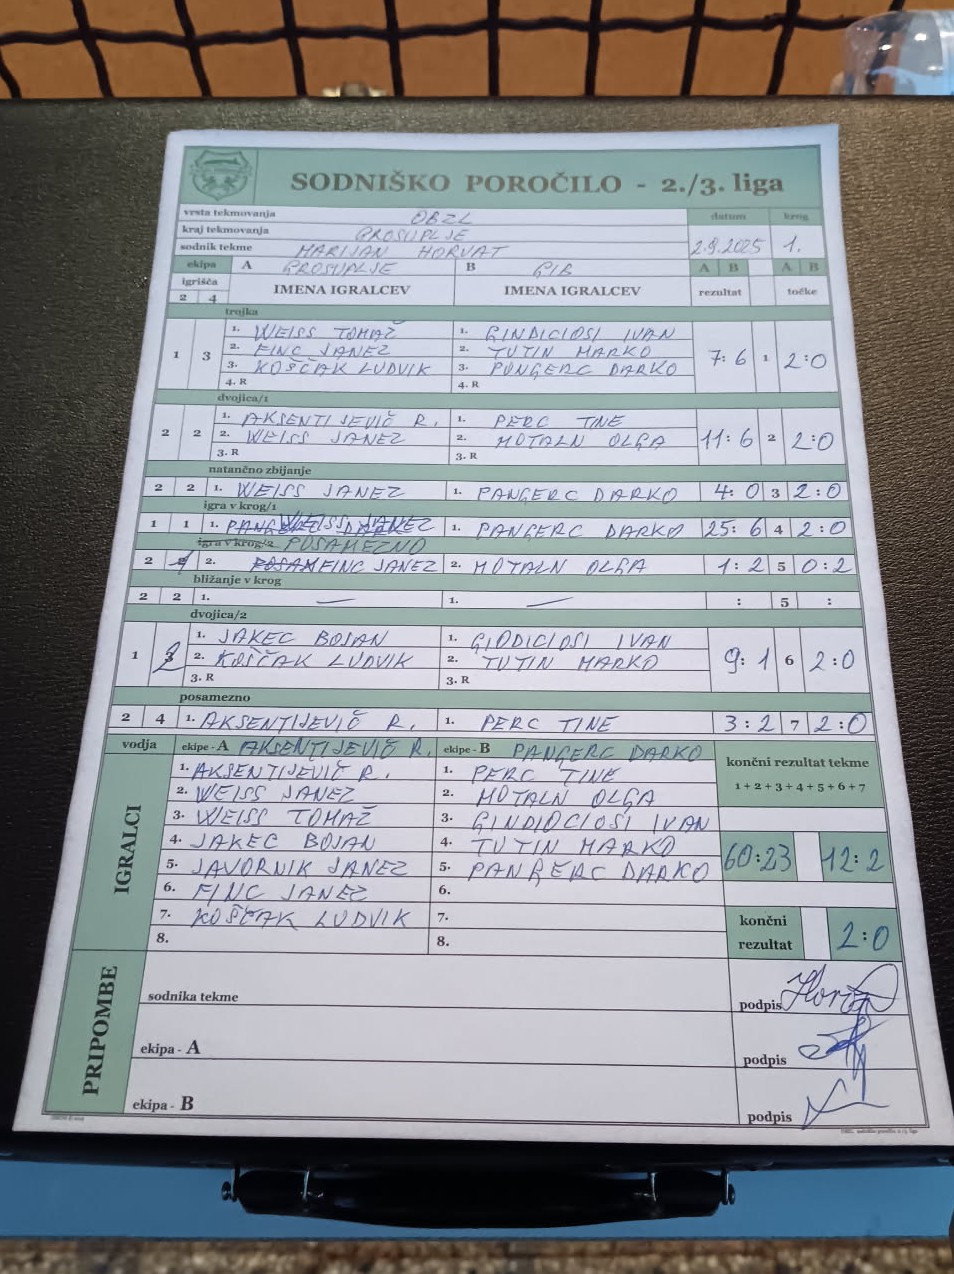 SODNIŠKO POROČILO - 2./3. liga
vrsta tekmovanja OBZL datum krog
kraj tekmovanja GROSUPLJE
sodnik tekme MARIJAN HORVAT 2.9.2025 1.
ekipa A GROSUPLJE B GIB A B A B
igrišča IMENA IGRALCEV IMENA IGRALCEV rezultat točke
2 4
trojka
1 3 1. WEISS TOMAŽ 1. GINDICIOSI IVAN 7:6 1 2:0
2. FINC JANEZ 2. TUTIN MARKO
3. KOŠČAK LUDVIK 3. PUNGERC DARKO
4. R 4. R
dvojica/1
2 2 1. AKSENTIJEVIČ R. 1. PERC TINE 11:6 2 2:0
2. WEISS JANEZ 2. MOTALN OLGA
3. R 3. R
natančno zbijanje
2 2 1. WEISS JANEZ 1. PANGERC DARKO 4:0 3 2:0
igra v krog/1
1 1 1. WEISS JANEZ 1. PANGERC DARKO 25:6 4 2:0
igra v krog/2 POSAMEZNO
2 2. FINC JANEZ 2. MOTALN OLGA 1:2 5 0:2
bližanje v krog
2 2 1. — 1. — : 5 :
dvojica/2
1 2 1. JAKEC BOJAN 1. GIODICIOSI IVAN 9:1 6 2:0
2. KOŠČAK LUDVIK 2. TUTIN MARKO
3. R 3. R
posamezno
2 4 1. AKSENTIJEVIČ R. 1. PERC TINE 3:2 7 2:0
vodja ekipe - A AKSENTIJEVIČ R. ekipe - B PANGERC DARKO končni rezultat tekme
IGRALCI
1. AKSENTIJEVIČ R. 1. PERC TINE 1+2+3+4+5+6+7
2. WEISS JANEZ 2. MOTALN OLGA
3. WEISS TOMAŽ 3. GINDIOCIOSI IVAN
4. JAKEC BOJAN 4. TUTIN MARKO 60:23 12:2
5. JAVORNIK JANEZ 5. PANGERC DARKO
6. FINC JANEZ 6.
7. KOŠČAK LUDVIK 7. končni rezultat 2:0
8. 8.
PRIPOMBE
sodnika tekme podpis
ekipa - A podpis
ekipa - B podpis